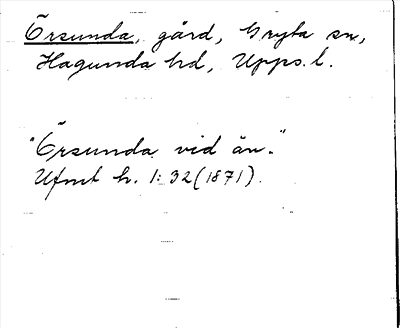 Örsunda, gård, Gryta sn,
Hagunda hd, Upps. l.
"Örsunda vid ån."
Ufmt h. 1:32 (1871).